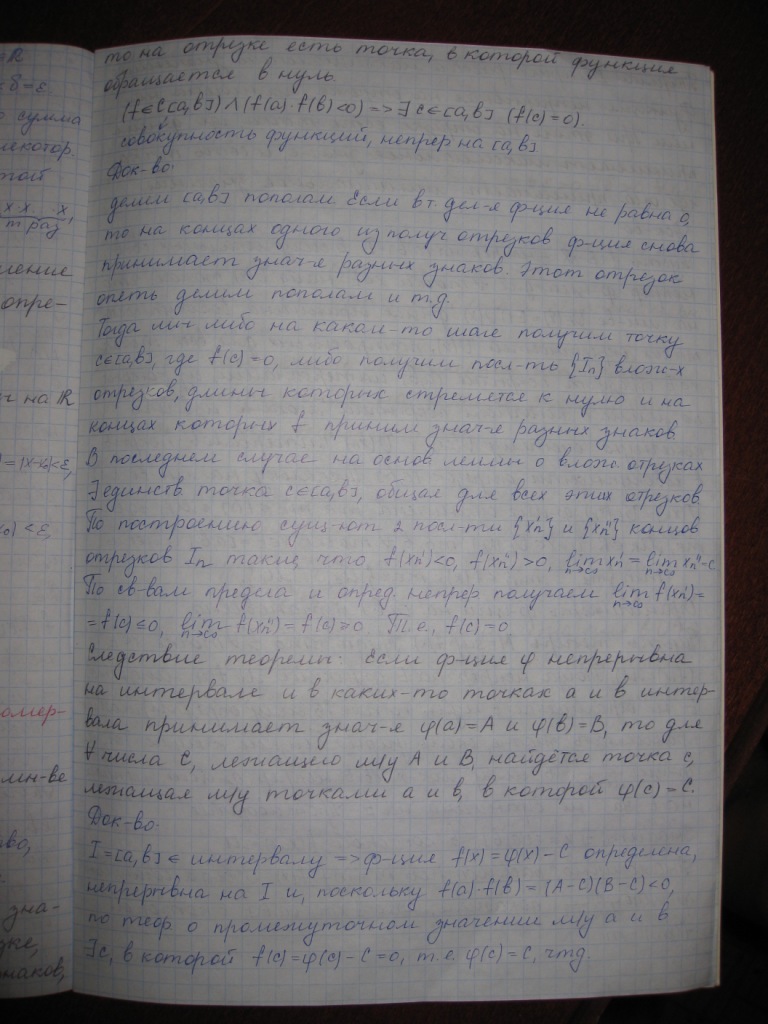 ℝ
δ=ε
сумма
некотор.
той
x·x…x
m раз
ление
опре-
на ℝ
=|x-x₀|<ε,
x₀) <ε,
омер-
мн-ве
во,
зна-
зке,
знаков,
то на отрезке есть точка, в которой функция
обращается в нуль.
(f∈C[a,b]) ∧ (f(a)·f(b)<0) => ∃ c∈[a,b] (f(c)=0).
совокупность функций, непрер на [a,b]
Док-во:
делим [a,b] пополам. Если в т. дел-я ф-ция не равна 0,
то на концах одного из получ отрезков ф-ция снова
принимает знач-я разных знаков. Этот отрезок
опять делим пополам и т.д.
Тогда либо на каком-то шаге получим точку
c∈[a,b], где f(c)=0, либо получим посл-ть {Iₙ} влож-х
отрезков, длины которых стремятся к нулю и на
концах которых f приним знач-я разных знаков
В последнем случае на основ леммы о влож. отрезках
∃ единств точка c∈[a,b], общая для всех этих отрезков.
По построению сущ-ют 2 посл-ти {xₙ'} и {xₙ''} концов
отрезков Iₙ такие, что f(xₙ')<0, f(xₙ'')>0, lim n→∞ xₙ' = lim n→∞ xₙ''=c
По св-вам предела и опред. непрер получаем lim n→∞ f(xₙ')=
= f(c)≤0, lim n→∞ f(xₙ'')= f(c)≥0. Т.е. f(c)=0
Следствие теоремы: Если ф-ция φ непрерывна
на интервале и в каких-то точках a и в интер-
вала принимает знач-я φ(a)=A и φ(b)=B, то для
∀ числа C, лежащего м/у A и B, найдётся точка c,
лежащая м/у точками a и в, в которой φ(c)=C.
Док-во:
I=[a,b] ∈ интервалу => ф-ция f(x)=φ(x)-C определена,
непрерывна на I и, поскольку f(a)·f(b)=(A-C)(B-C)<0,
по теор о промежуточном значении м/у a и в
∃c, в которой f(c)=φ(c)-C=0, т.е. φ(c)=C, чтд.